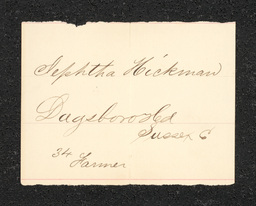 Jephtha Hickman
Dagsboro Hd
Sussex C
34
Farmer